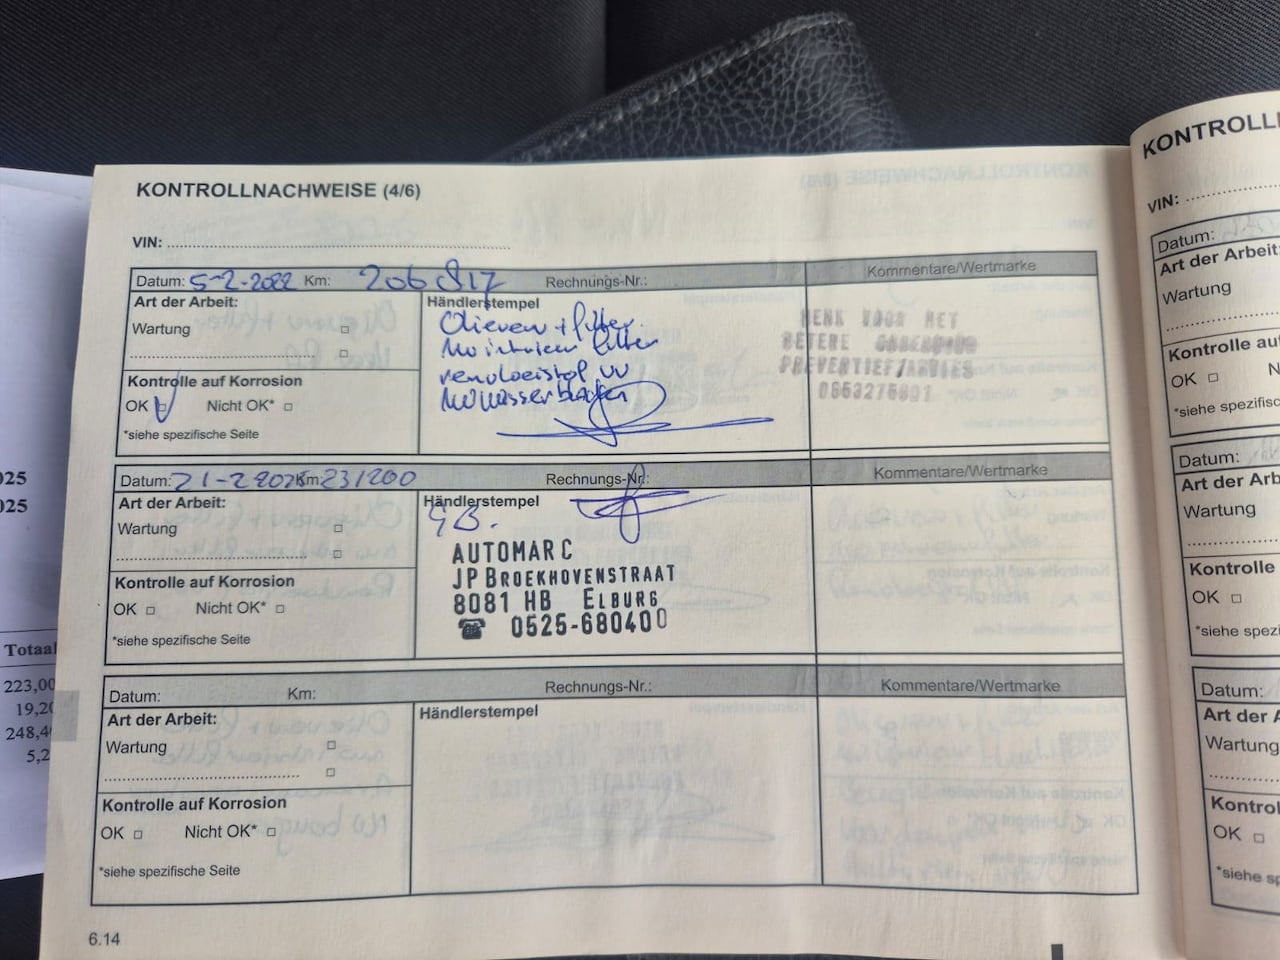 KONTROLLNACHWEISE (4/6)
VIN:
Datum: 5-2-2022 Km: 206817 Rechnungs-Nr.: Kommentare/Wertmarke
Art der Arbeit:
Wartung
Kontrolle auf Korrosion
OK Nicht OK*
*siehe spezifische Seite
Händlerstempel
filter
HENK VOOR HET
BETERE
PREVENTIEF/ADVIES
Datum: 21-2 Km: 231200 Rechnungs-Nr.: Kommentare/Wertmarke
Art der Arbeit:
Wartung
Kontrolle auf Korrosion
OK Nicht OK*
*siehe spezifische Seite
Händlerstempel
AUTOMARC
JP BROEKHOVENSTRAAT
8081 HB ELBURG
☎ 0525-680400
Datum: Km: Rechnungs-Nr.: Kommentare/Wertmarke
Art der Arbeit:
Wartung
Kontrolle auf Korrosion
OK Nicht OK*
*siehe spezifische Seite
Händlerstempel
6.14
025
025
Totaal
223,00
19,20
248,4
5,2
KONTROLL
VIN:
Datum:
Art der Arbeit:
Wartung
Kontrolle au
OK
*siehe spezifisc
Datum:
Art der Arb
Wartung
Kontrolle
OK
*siehe spezi
Datum:
Art der A
Wartung
Kontrol
OK
*siehe sp